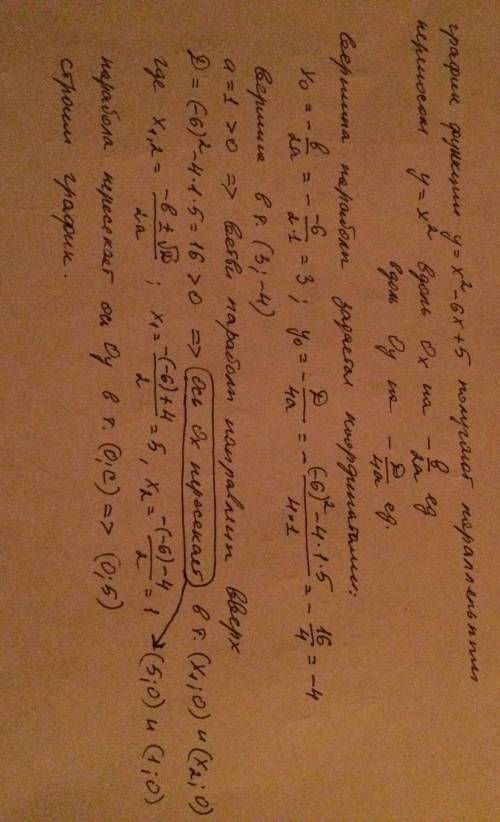 график функции y = x² - 6x + 5 получают параллельным
переносом y = x² вдоль Ox на - b/2a ед
вдоль Oy на - D/4a ед.
вершина парабол задается координатами:
x₀ = - b/2a = - -6/2·1 = 3 ; y₀ = - D/4a = - (-6)² - 4·1·5/4·1 = - 16/4 = -4
вершина в т. (3; -4)
a = 1 > 0 => ветви параболы направлены вверх
D = (-6)² - 4·1·5 = 16 > 0 => ось Ox пересекает в т. (x₁; 0) и (x₂; 0)
где x₁,₂ = -b ± √D/2a ; x₁ = -(-6)+4/2 = 5, x₂ = -(-6)-4/2 = 1 (5; 0) и (1; 0)
парабола пересекает ось Oy в т. (0; c) => (0; 5)
строим график.